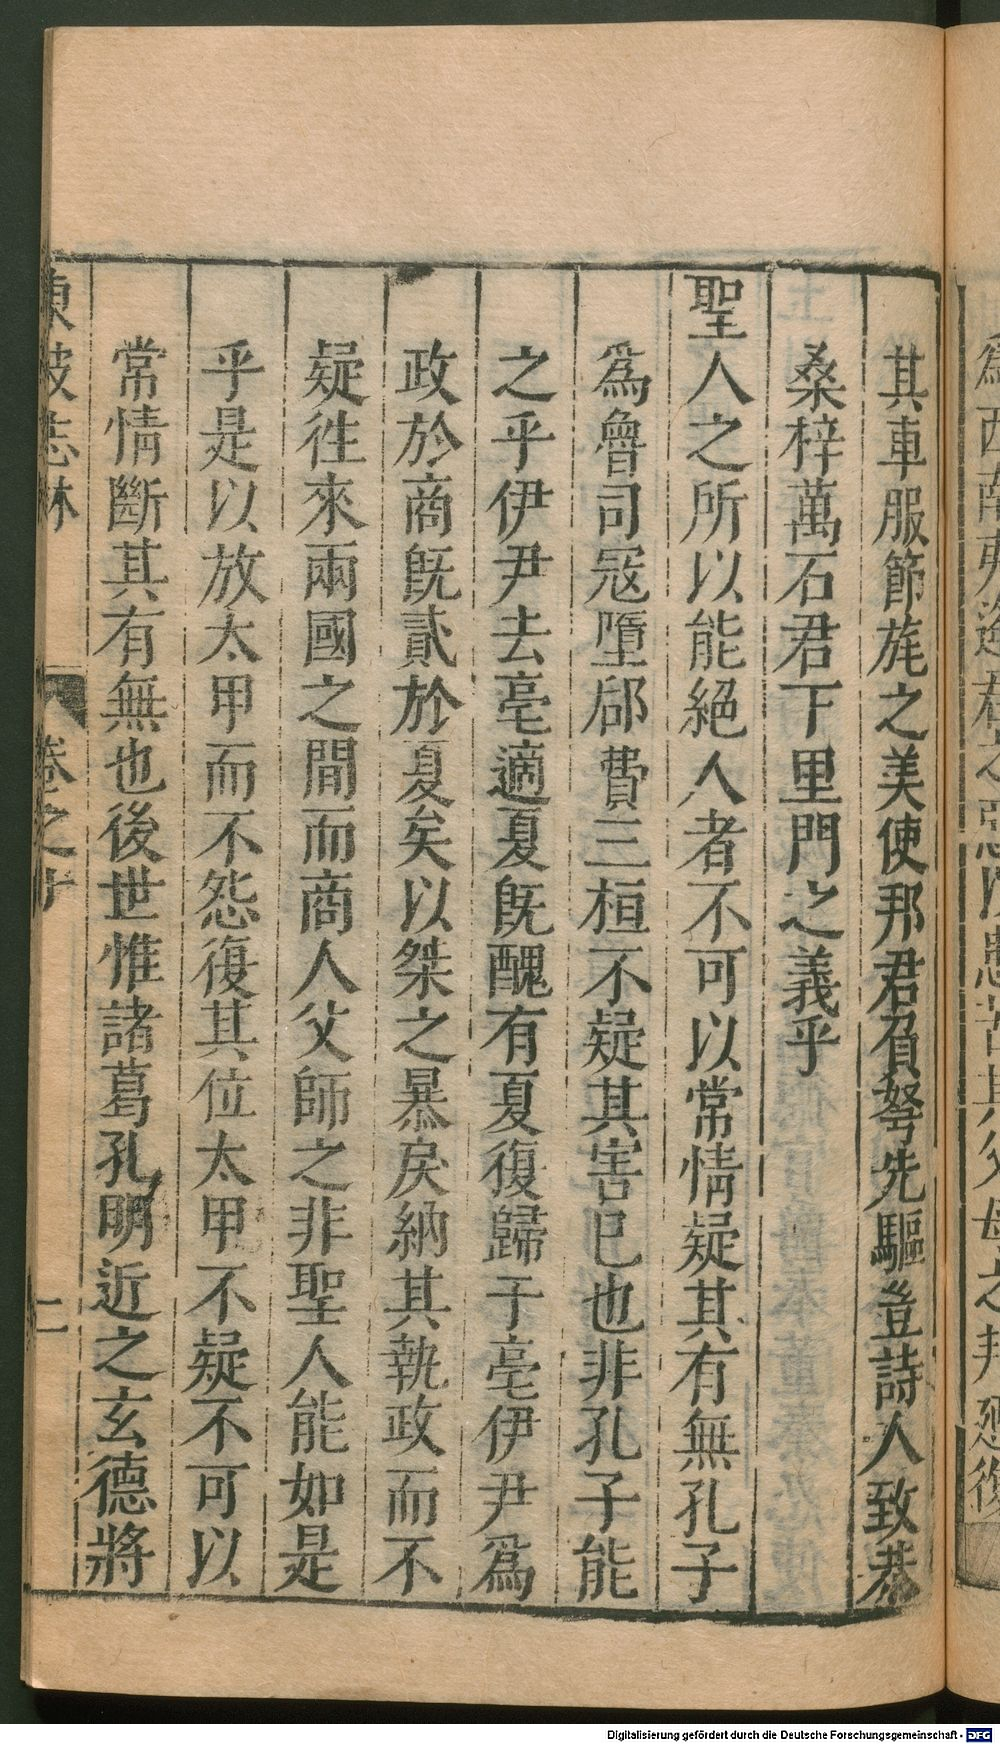 其車服節旄之美使邦君負弩先驅豈詩人致恭
桑梓萬石君下里門之義乎
聖人之所以能絕人者不可以常情疑其有無孔子
爲魯司寇墮郈費三桓不疑其害已也非孔子能
之乎伊尹去亳適夏旣醜有夏復歸于亳伊尹爲
政於商旣貳於夏矣以桀之暴戾納其執政而不
疑徃來兩國之間而商人父師之非聖人能如是
乎是以放太甲而不怨復其位太甲不疑不可以
常情斷其有無也後世惟諸葛孔明近之玄德將
東坡志林 卷之十 二
Digitalisierung gefördert durch die Deutsche Forschungsgemeinschaft - DFG